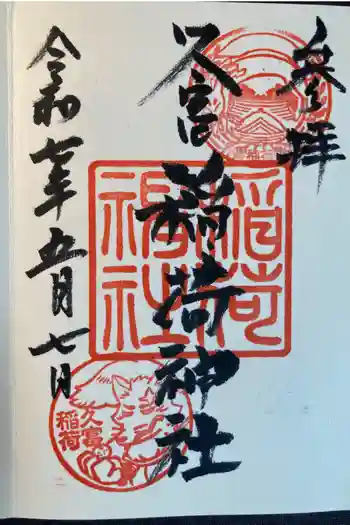 参拝
久富稲荷神社
令和七年五月七日
稲荷
神社
久富
稲荷